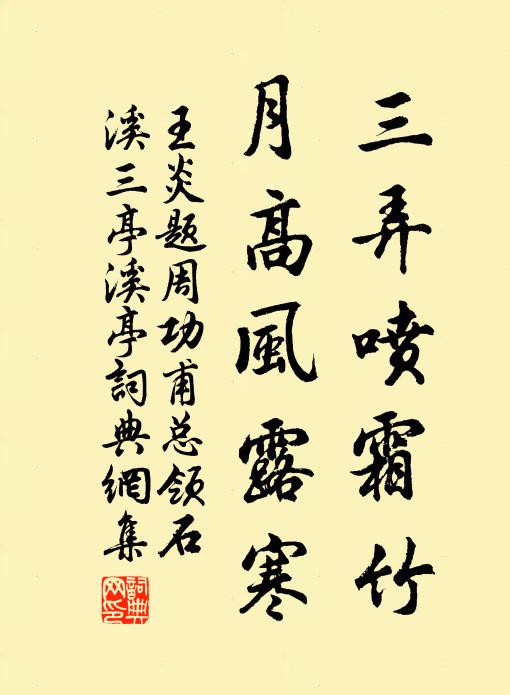 三弄噴霜竹
月高風露寒
王炎题周功甫总领石
溪三亭溪亭詞典網集